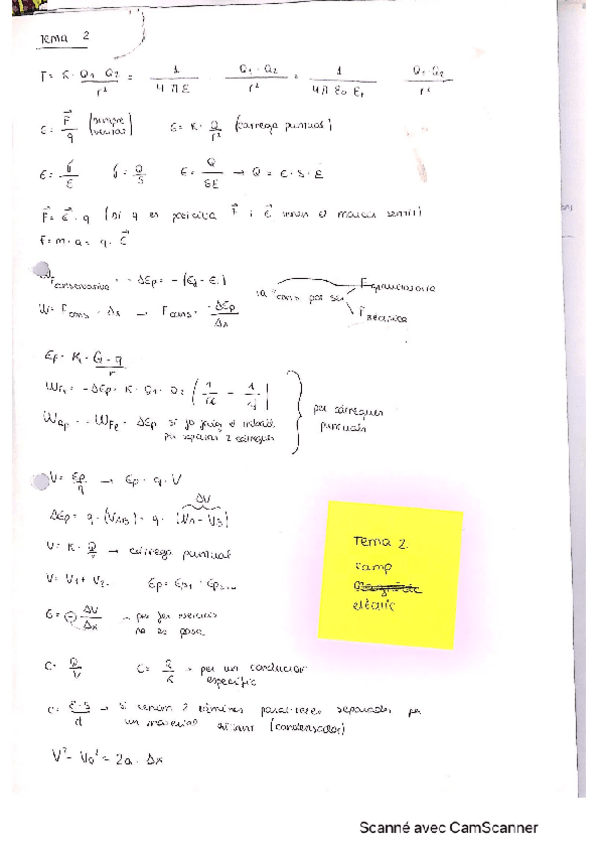 Tema 2
F = K · Q1 · Q2 / r² = 1 / 4πε · Q1 · Q2 / r² = 1 / 4π ε0 εr · Q1 · Q2 / r²
E = F⃗ / q E = K · Q / r² (càrrega puntual)
E = σ / ε σ = Q / S E = Q / SE → Q = E · S · E
F⃗ = E⃗ · q (si q es positiva F⃗ i E⃗ tenen el mateix sentit)
F = m · a = q · E⃗
W Fconservativa = - ΔEp = - (Ef - Ei) F gravitatoria
W = Fcons · Δx → Fcons = - ΔEp / Δx la Fcons pot ser F elèctrica
Ep = K · Q · q / r
WFe = - ΔEp = K · Q1 · Q2 ( 1 / ri - 1 / rf )
= - WFe = ΔEp si jo faig el treball per càrregues
per separar 2 càrregues puntuals
V = Ep / q → Ep = q · V
ΔV
ΔEp = q · (VAB) = q · (VA - VB)
V = K · Q / r → càrrega puntual
V = V1 + V2 Ep = Ep1 + Ep2...
E = - ΔV / Δx → per fer exercicis
no es posa
C = Q / V C = R / K → per un conductor
específic
C = ε · S / d → si tenim 2 làmines paral·leles separades per
un material aïllant (condensador)
V² - V0² = 2a · Δx
Tema 2.
camp
elèctric
Scanné avec CamScanner